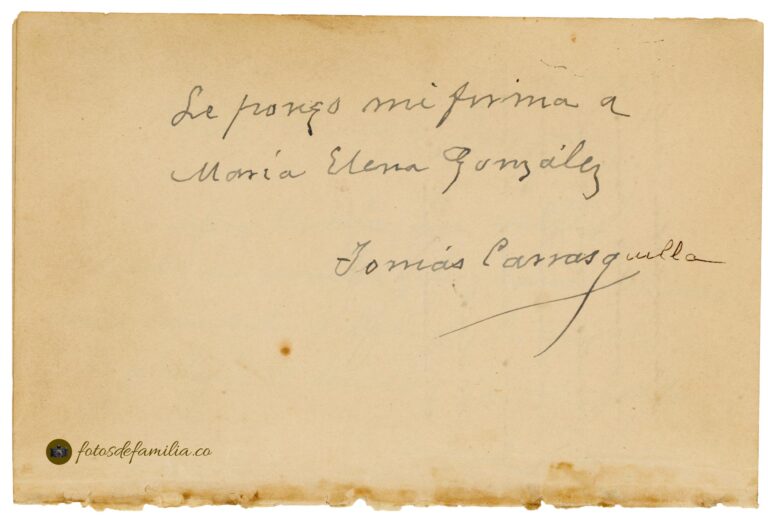 Le pongo mi firma a
María Elena González
Tomás Carrasquilla
fotosdefamilia.co